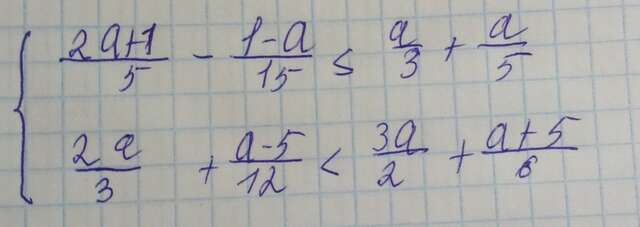 (2a+1)/5 - (1-a)/15 ≤ a/3 + a/5
2a/3 + (a-5)/12 < 3a/2 + (a+5)/6